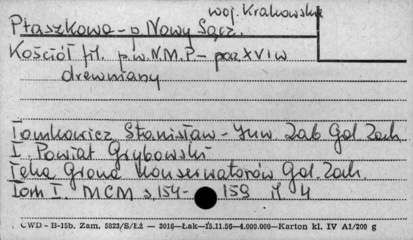 woj. Krakowskie
Ptaszkowa - p. Nowy Sącz.
Kościół fil. p.w. N.M.P - pocz XVI w
drewniany
Tomkowicz Stanisław - Inw Zab Gal Zach.
I. Powiat Grybowski
Teka Grona Konserwatorów Gal. Zach.
Tom I. MCM s, 154 - 159 il 4
CWD - B-15b. Zam. 5822/S/Łż — 3016—Łak—15.11.56—4.000.000—Karton kl. IV A1/200 g